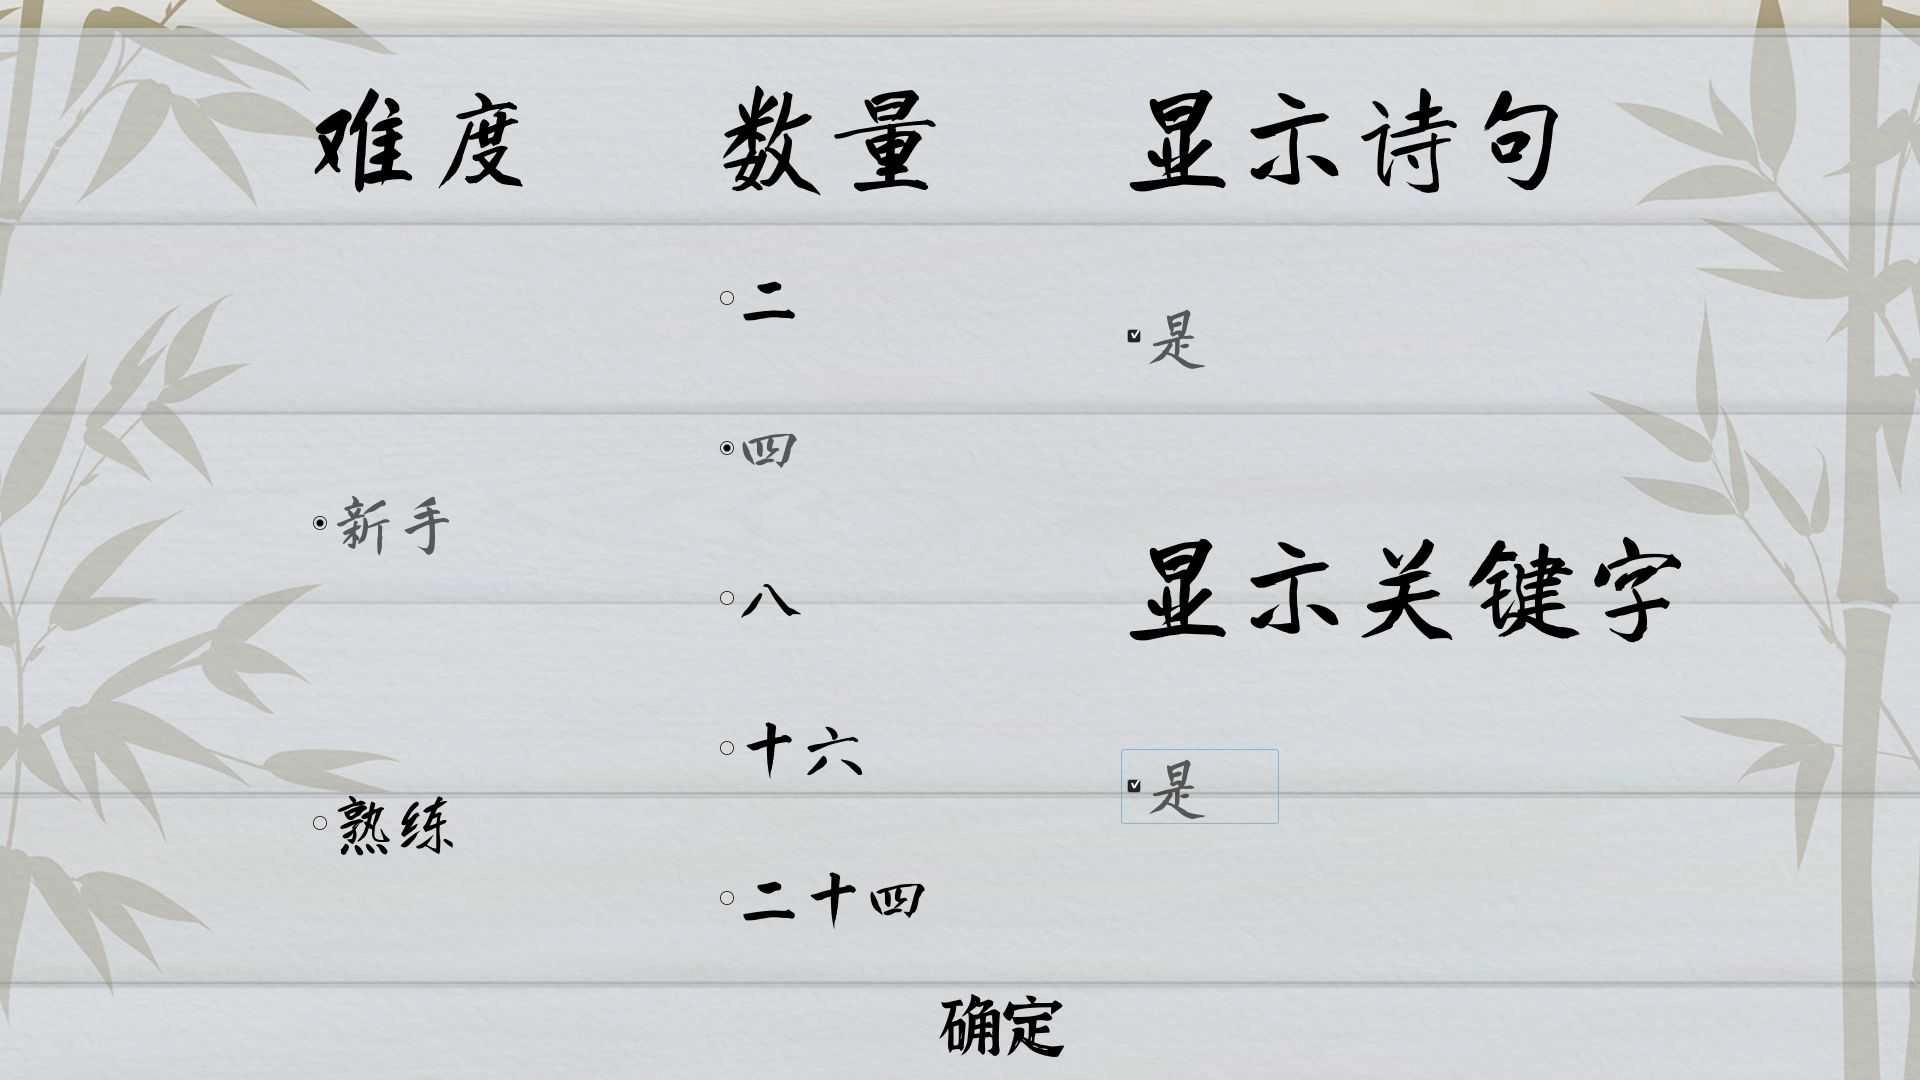 难度
数量
显示诗句
二
是
四
新手
显示关键字
八
十六
是
熟练
二十四
确定